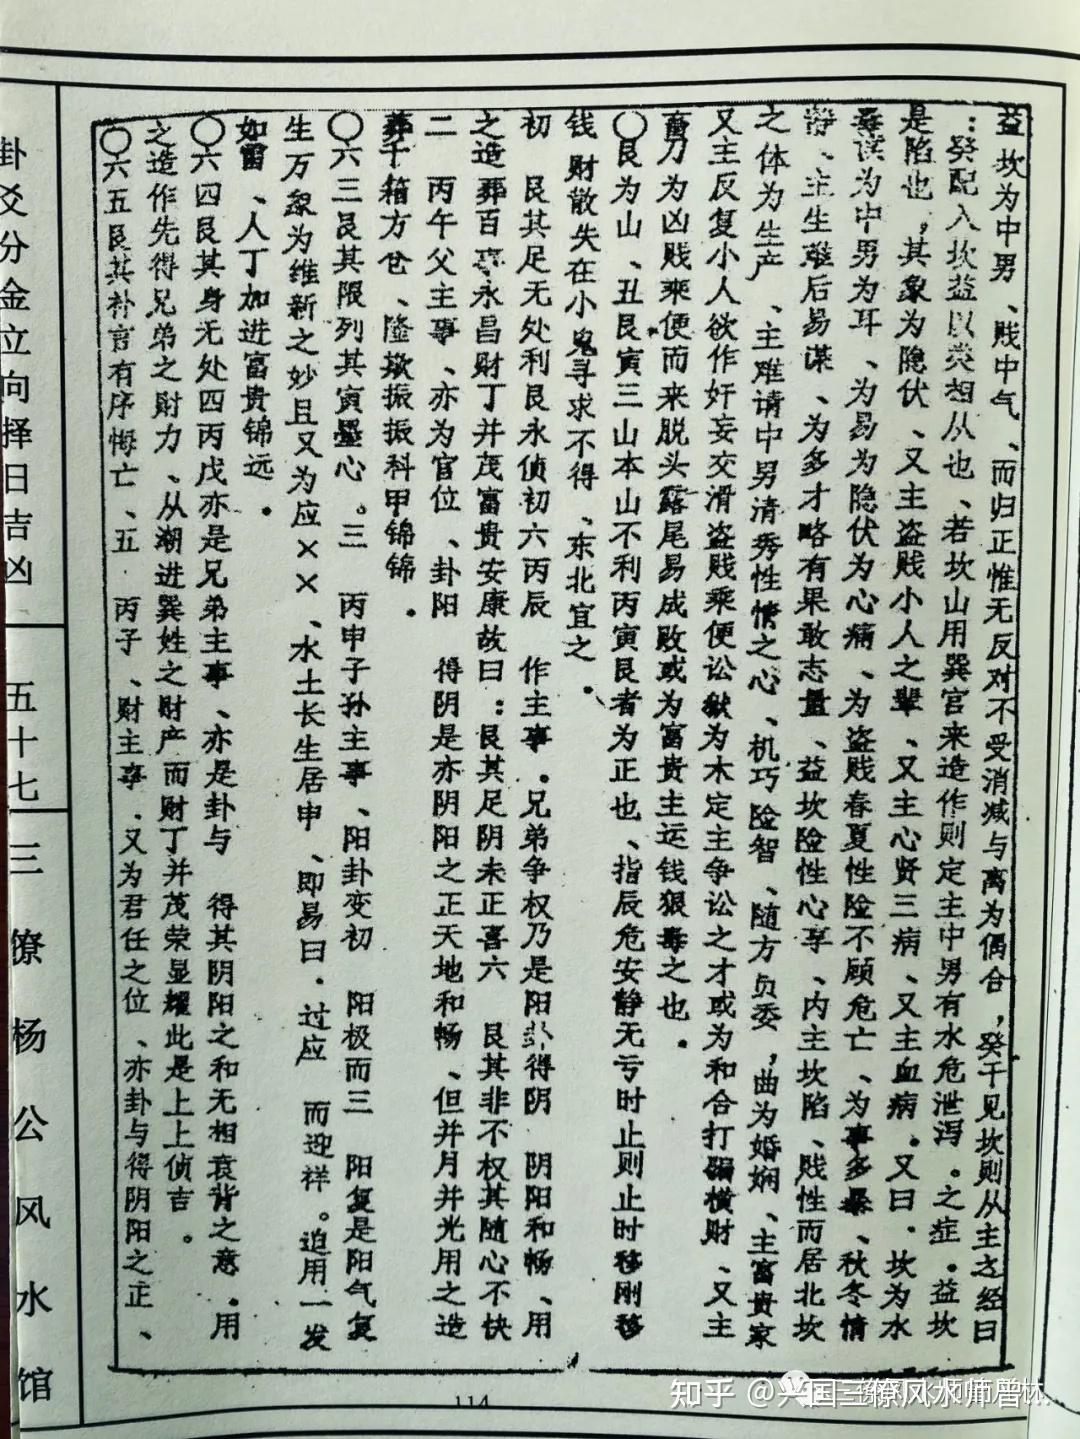 益坎为中男、贱中气、而归正惟无反对不受消减与离为偶合，癸干见坎则从主之经曰
：癸配入坎益以类相从也、若坎山用巽宫来造作则定主中男有水危泄泻。之症。益坎
是陷也，其象为隐伏、又主盗贱小人之辈、又主心贤三病、又主血病．又曰．坎为水
毒读为中男为耳、为易为隐伏为心痛、为盗贱春夏性险不顾危亡、为事多暴、秋冬情
静、主生难后易谋、为多才略有果敢志量、益坎险性心享、内主坎陷、贱性而居北坎
之体为生产、主难请中男清秀性情之心、机巧险智、随方负委，曲为婚娴、主富贵家
又主反复小人欲作奸妄交滑盗贱乘便讼狱为木定主争讼之才或为和合打骗横财、又主
剪刀为凶贱乘便而来脱头露尾易成败或为富贵主运钱狠毒之也．
〇艮为山、丑艮寅三山本山不利丙寅艮者为正也、指辰危安静无亏时止则止时移刚移
钱财散失在小鬼寻求不得、东北宜之．
初 艮其足无处利艮永侦初六丙辰 作主事．兄弟争权乃是阳卦得阴 阴阳和畅、用
之造葬百事永昌财丁并茂富贵安康故曰：艮其足阴未正喜六 艮其非不权其随心不快
二 丙午父主事、亦为官位、卦阳 得阴是亦阴阳之正天地和畅、但并月并光用之造
葬千箱方仓、隆掀振振科甲锦锦．
〇六三艮其限列其寅墨心。三 丙申子孙主事、阳卦变初 阳极而三 阳复是阳气复
生万象为维新之妙且又为应××、水土长生居申、即易曰．过应 而迎祥。迫用一发
如雷、人丁加进富贵锦远．
〇六四艮其身无处四丙戊亦是兄弟主事、亦是卦与 得其阴阳之和无相衰背之意．用
之造作先得兄弟之财力、从潮进巽姓之财产而财丁并茂荣显耀此是上上侦吉。
〇六五艮其补言有序悔亡、五 丙子、财主事．又为君任之位、亦卦与得阴阳之正、
卦爻分金立向择日吉凶
五十七
三僚杨公风水馆
114
知乎 @兴国三僚风水师曾林